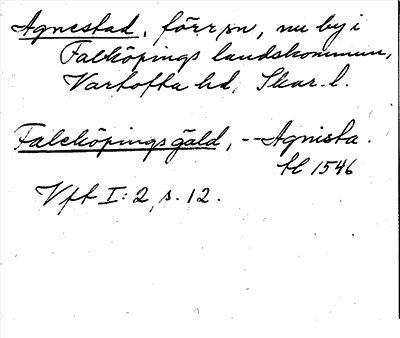 Agnestad, förr sn, nu by i
Falköpings landskommun,
Vartofta hd, Skar. l.
Faleköpings gäld, -- Agnista.
tl 1546
Vft I: 2, s. 12.